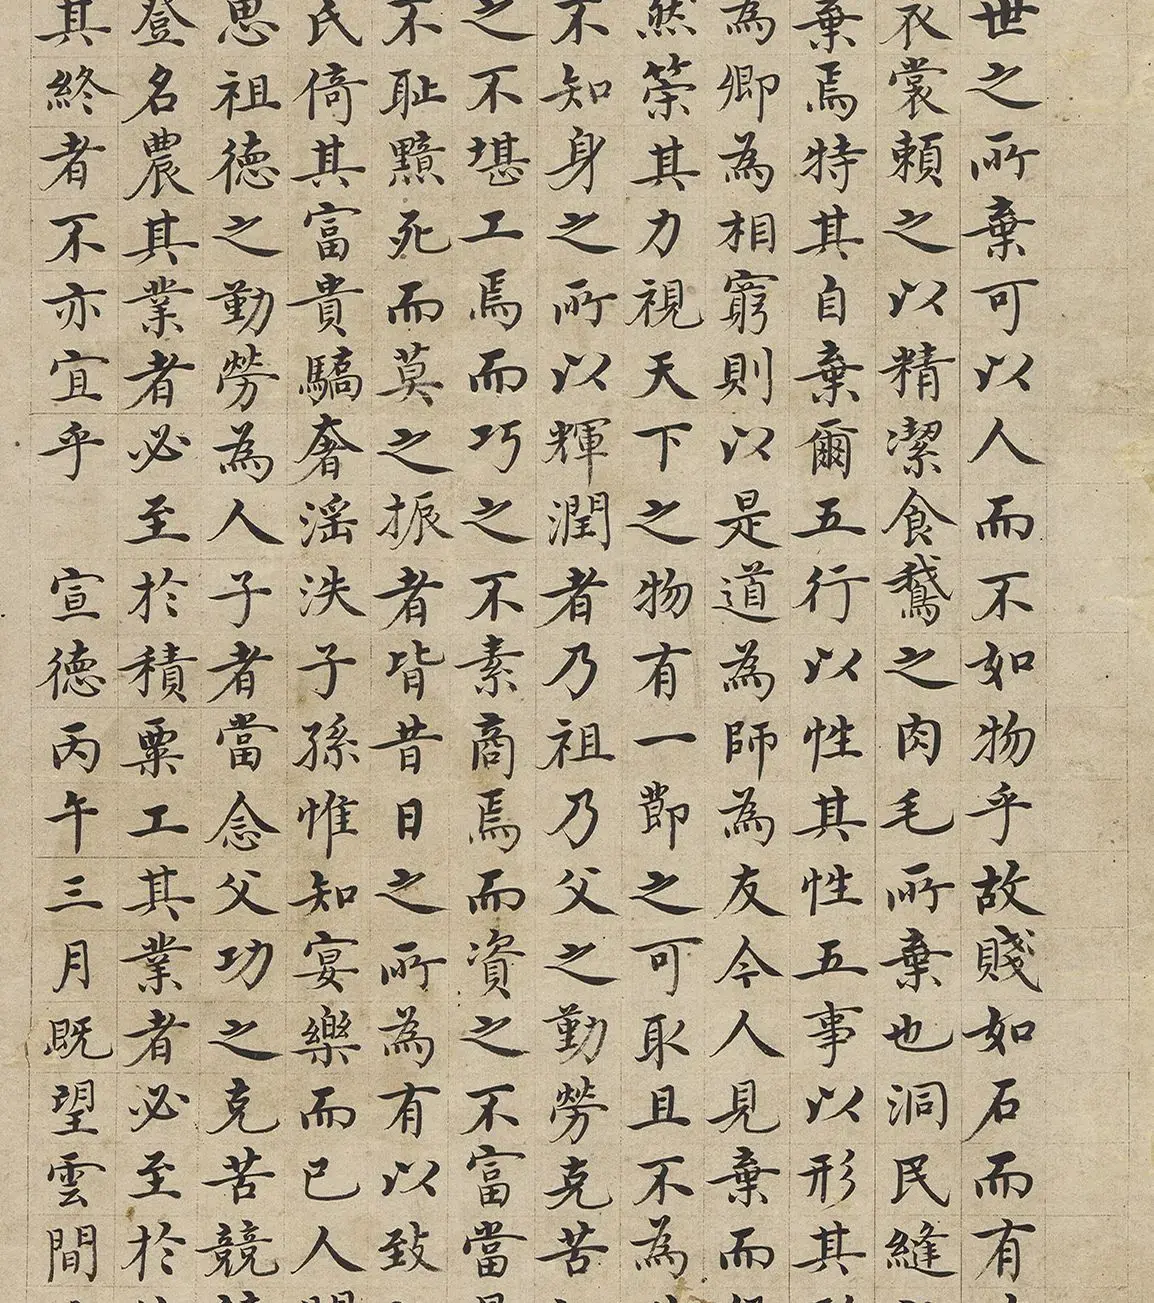 世之所棄可以人而不如物乎故賤如石而有
衣裳賴之以精潔食鵝之肉毛所棄也洞民縫
棄焉特其自棄爾五行以性其性五事以形其
為卿為相窮則以是道為師為友今人見棄而
然榮其力視天下之物有一節之可取且不為
不知身之所以輝潤者乃祖乃父之勤勞克苦
之不堪工焉而巧之不素商焉而資之不富當
不耻黥死而莫之振者皆昔日之所為有以致
氏倚其富貴驕奢淫泆子孫惟知宴樂而已人
思祖德之勤勞為人子者當念父功之克苦競
登名農其業者必至於積粟工其業者必至於
其終者不亦宜乎 宣德丙午三月既望雲間